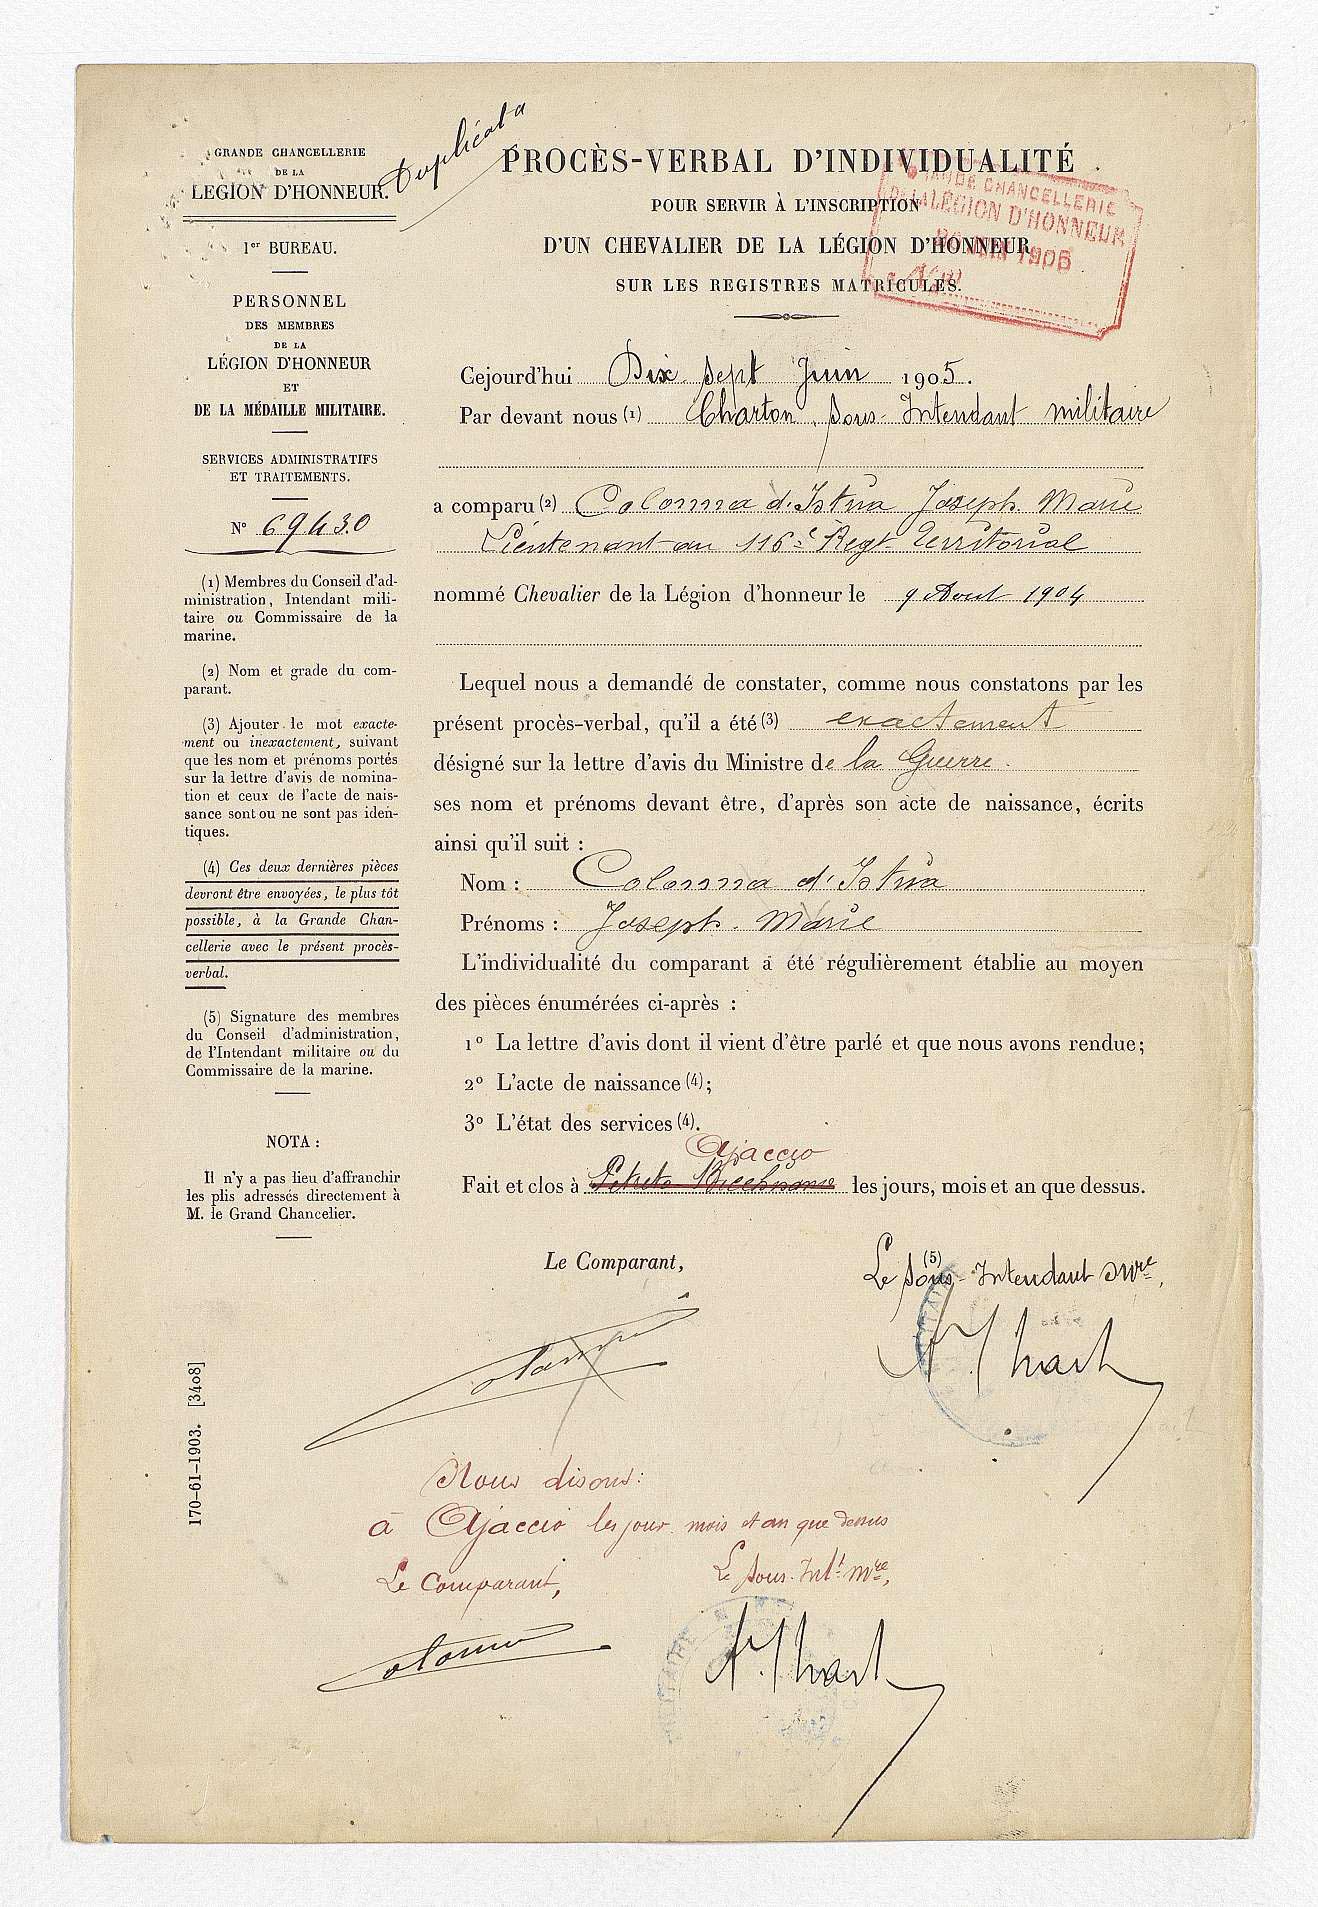 GRANDE CHANCELLERIE
DE LA
LÉGION D'HONNEUR.
Duplicata
1er BUREAU.
PERSONNEL
DES MEMBRES
DE LA
LÉGION D'HONNEUR
ET
DE LA MÉDAILLE MILITAIRE.
SERVICES ADMINISTRATIFS
ET TRAITEMENTS.
N° 69430
(1) Membres du Conseil d'ad-
ministration, Intendant mili-
taire ou Commissaire de la
marine.
(2) Nom et grade du com-
parant.
(3) Ajouter le mot exacte-
ment ou inexactement, suivant
que les nom et prénoms portés
sur la lettre d'avis de nomina-
tion et ceux de l'acte de nais-
sance sont ou ne sont pas iden-
tiques.
(4) Ces deux dernières pièces
devront être envoyées, le plus tôt
possible, à la Grande Chan-
cellerie avec le présent procès-
verbal.
(5) Signature des membres
du Conseil d'administration,
de l'Intendant militaire ou du
Commissaire de la marine.
NOTA :
Il n'y a pas lieu d'affranchir
les plis adressés directement à
M. le Grand Chancelier.
170-61-1903. [3408]
PROCÈS-VERBAL D'INDIVIDUALITÉ
POUR SERVIR À L'INSCRIPTION
D'UN CHEVALIER DE LA LÉGION D'HONNEUR
SUR LES REGISTRES MATRICULES.
GRANDE CHANCELLERIE
DE LA LÉGION D'HONNEUR
JUIN 1905
Cejourd'hui Dix sept Juin 1905.
Par devant nous (1) Charton, Sous-Intendant militaire
a comparu (2) Colonna d'Istria Joseph Marie
Lieutenant au 116e Regt Territorial
nommé Chevalier de la Légion d'honneur le 9 Aout 1904
Lequel nous a demandé de constater, comme nous constatons par les
présent procès-verbal, qu'il a été (3) exactement
désigné sur la lettre d'avis du Ministre de la Guerre.
ses nom et prénoms devant être, d'après son acte de naissance, écrits
ainsi qu'il suit :
Nom : Colonna d'Istria
Prénoms : Joseph Marie
L'individualité du comparant a été régulièrement établie au moyen
des pièces énumérées ci-après :
1° La lettre d'avis dont il vient d'être parlé et que nous avons rendue;
2° L'acte de naissance (4);
3° L'état des services (4).
Ajaccio
Fait et clos à Petreto Bicchisano les jours, mois et an que dessus.
Le Comparant,
(5)
Le Sous-Intendant Mre,
Nous disons:
à Ajaccio les jour mois et an que dessus
Le Comparant,
Le Sous-Intt Mre,